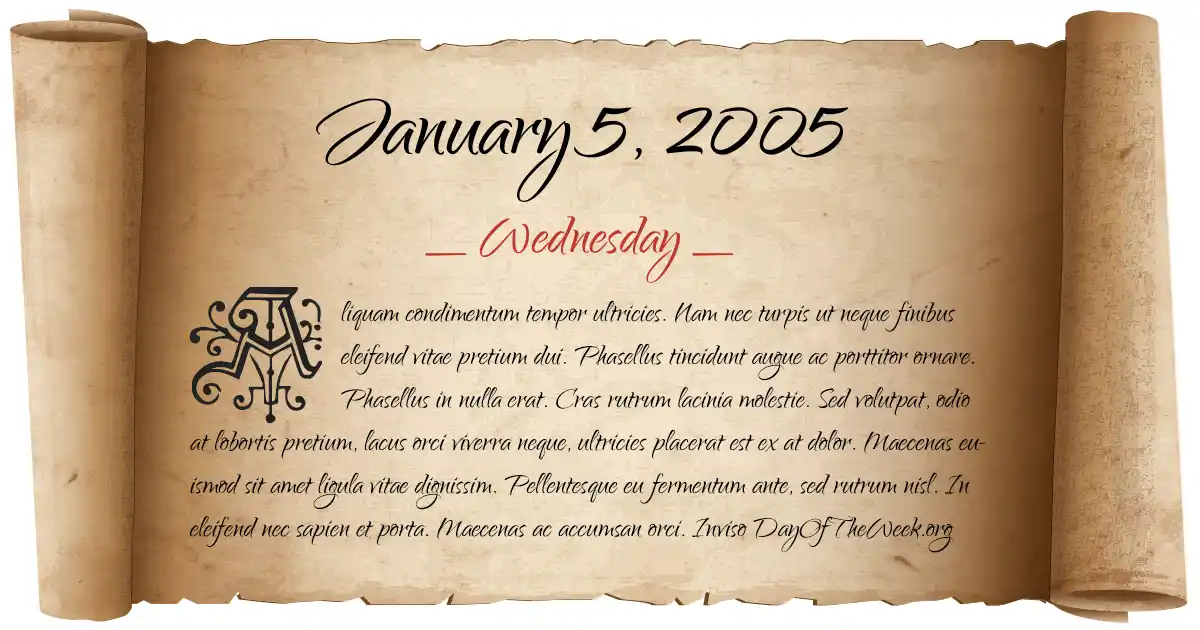 January 5, 2005
— Wednesday —
Aliquam condimentum tempor ultricies. Nam nec turpis ut neque finibus
eleifend vitae pretium dui. Phasellus tincidunt augue ac porttitor ornare.
Phasellus in nulla erat. Cras rutrum lacinia molestie. Sed volutpat, odio
at lobortis pretium, lacus orci viverra neque, ultricies placerat est ex at dolor. Maecenas eu-
ismod sit amet ligula vitae dignissim. Pellentesque eu fermentum ante, sed rutrum nisl. In
eleifend nec sapien et porta. Maecenas ac accumsan orci. Inviso DayOfTheWeek.org